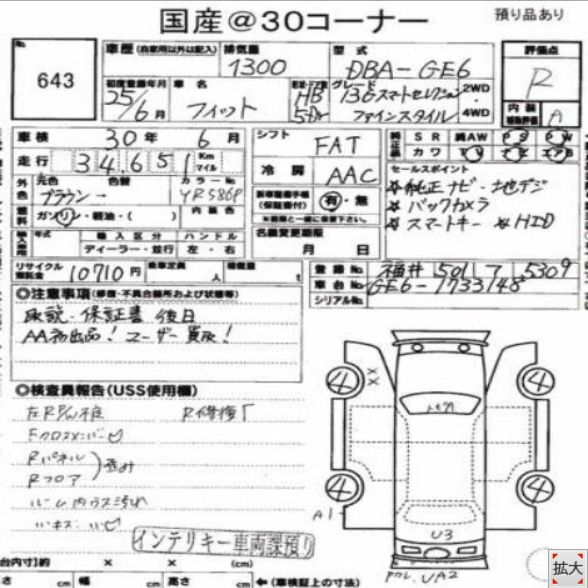 国産@30コーナー 預り品あり
No. 643
車歴(自家用以外は記入) 排気量 1300 型式 DBA-GE6 評価点 R
初度登録年月 25/6月 車名 フィット HB 5Dr グレード 13Gスマートセレクション ファインスタイル 2WD 4WD 内装 A
車検 30年 6月 シフト FAT 純正装備 SR 純AW PS PW
走行 34,651 Km マイル 冷房 AAC カワ TV エアB
外色 元色 ブラウン 色替 カラーNo YR586P セールスポイント
☆純正ナビ・地デジ
☆バックカメラ
☆スマートキー ☆HID
燃料 ガソリン・軽油・( ) 内装色 有・無
年式 輸入区分 ハンドル 名義変更期限
ディーラー・並行 左・右 月 日
リサイクル預託金 10710円 乗車定員 人 積載量 t 登録No. 福井 501 フ 5309
車台No. GE6-1733148
シリアルNo.
◎注意事項(修復・不具合箇所および状態等)
取説・保証書 後日
AA初出品!ユーザー買取!
◎検査員報告(USS使用欄)
Fクロスメンバー
Rパネル
Rフロア 歪み
ルーム内ウス汚れ
インテリキー車両課預り
4 4 4 4
XX
A1
U3
UA2
台内寸)約 × × (cm)
さ cm 幅 cm 高さ cm ←(車検証上の寸法)
拡大